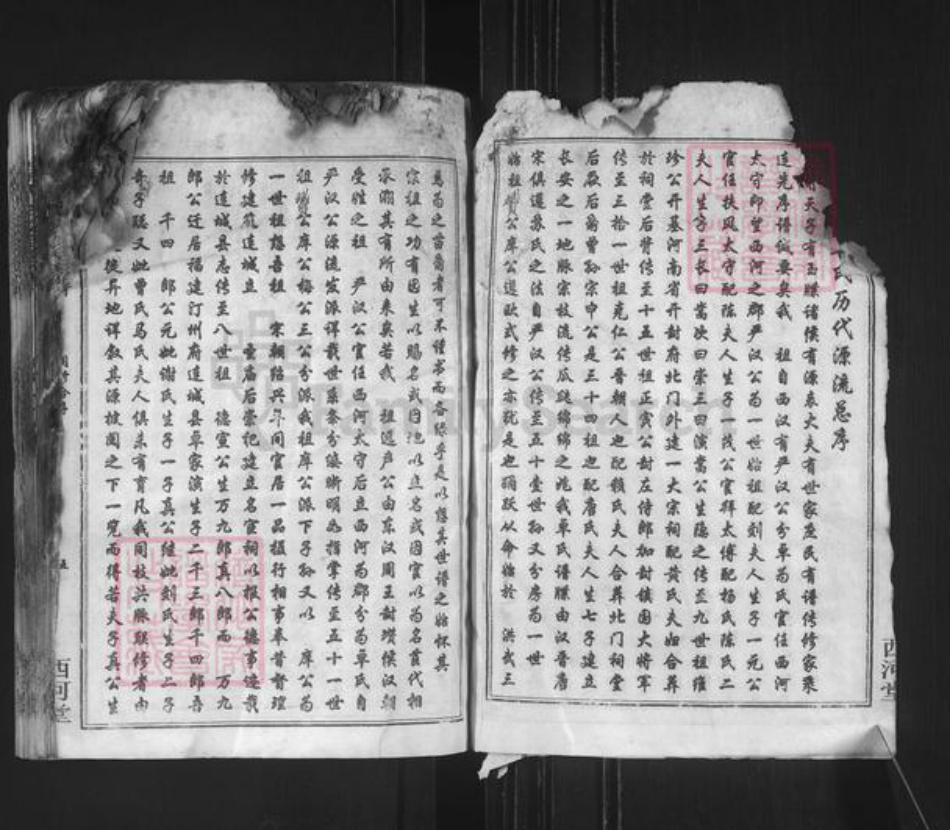 氏历代源流总序
天子有玉牒诸侯有源表大夫有世家庶民有谱传修家乘
连先序谱诚要矣我 祖自西汉有严汉公分卓为氏官任西河
太守即望西河之郡严汉公为一世始祖配刘夫人生子一元公
官任扶风太守配陈夫人生子茂公官拜太傅配杨氏陈氏二
夫人生子三长曰嵩次曰崇三曰演嵩公生隐之传至九世祖雍
珍公开基河南省开封府北门外建一大宗祠配黄氏夫妇合葬
于祠堂后背传至十五世祖正宾公封左侍郎加封镇国大将军
传至三拾一世祖克仁公晋朝人也配赖氏夫人合葬北门祠堂
后厥后裔曹孙宗申公是三十四祖也配唐氏夫人生七子建立
长安之一地脉宗枝流传瓜瓞绵绵之兆我卓氏谱牒由汉晋唐
宋俱遵苏氏之法自严汉公传至五十壹世孙又分房为一世
始祖 公库公遵欧式修之亦犹是也弼跃从命始于 洪武三
为之苗裔者可不谨书而各录乎是以想其世谱之始怀其
宗祖之功有因生以赐名或因池以廷名或因官以为名苗代相
承溯其有所由来矣若我 祖遐产公由东汉周王封瓒侯汉朝
受姓之祖 严汉公官任西河太守后立西河为郡分为卓氏自
严汉公源流发派详载世系条分缕晰明为指掌传至五十一世
祖 公库公梅公三公分派我祖库公派下子孙又以 库公为
一世祖想吾祖 宋朝绍兴年间官居一品摄行相事奉旨督理
修建筑连城立 重庙后崇祀建立名宦祠以报公德事迹载
于连城县志传至八世祖 德宣公生万九郎真八郎而 万九
郎公迁居福建汀州府连城县卓家演生子二千三郎千四郎吾
祖 千四 郎公元妣谢氏生子一子真公继妣刘氏生子二子
奇子聪又妣曹氏马氏夫人俱未有育凡我同枝共脉联修者由
徙异地详叙其源披阅之下一览而得若夫子真公生
五
西河堂
西河堂
FamilySearch